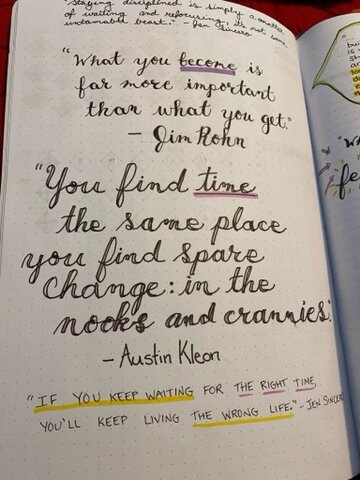 "Staying disciplined is simply a matter
of waiting and refocusing, it's not some
untamable beast." - Jen Sincero
"What you become is
far more important
than what you get."
- Jim Rohn
"You find time
the same place
you find spare
change: in the
nooks and crannies."
- Austin Kleon
"IF YOU KEEP WAITING FOR THE RIGHT TIME,
YOU'LL KEEP LIVING THE WRONG LIFE." - JEN SINCERO